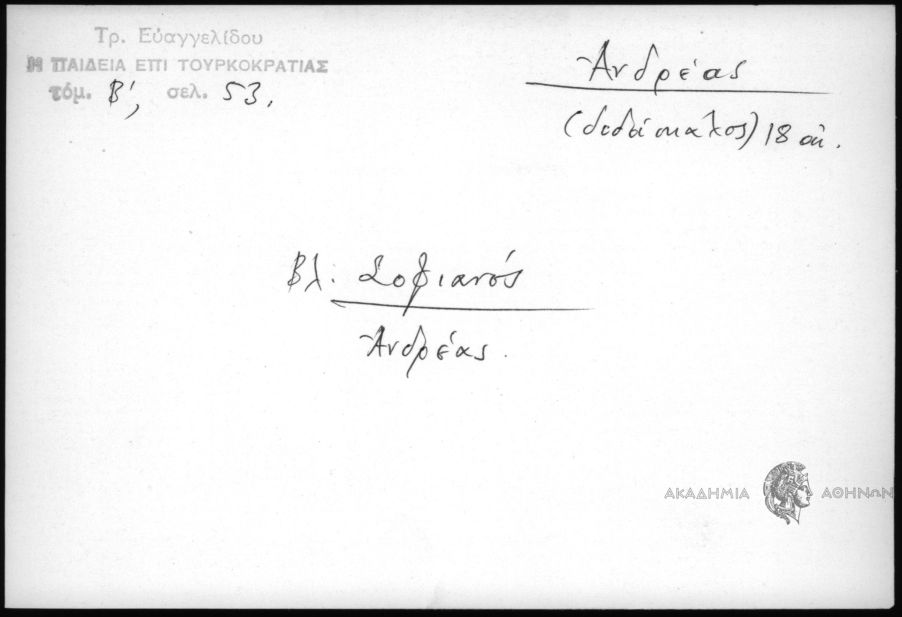 Τρ. Εὐαγγελίδου
Η ΠΑΙΔΕΙΑ ΕΠΙ ΤΟΥΡΚΟΚΡΑΤΙΑΣ
τόμ. Β', σελ. 53.
Ἀνδρέας
(διδάσκαλος) 18 αἰ.
Βλ. Σοφιανός
Ἀνδρέας.
ΑΚΑΔΗΜΙΑ ΑΘΗΝΩΝ